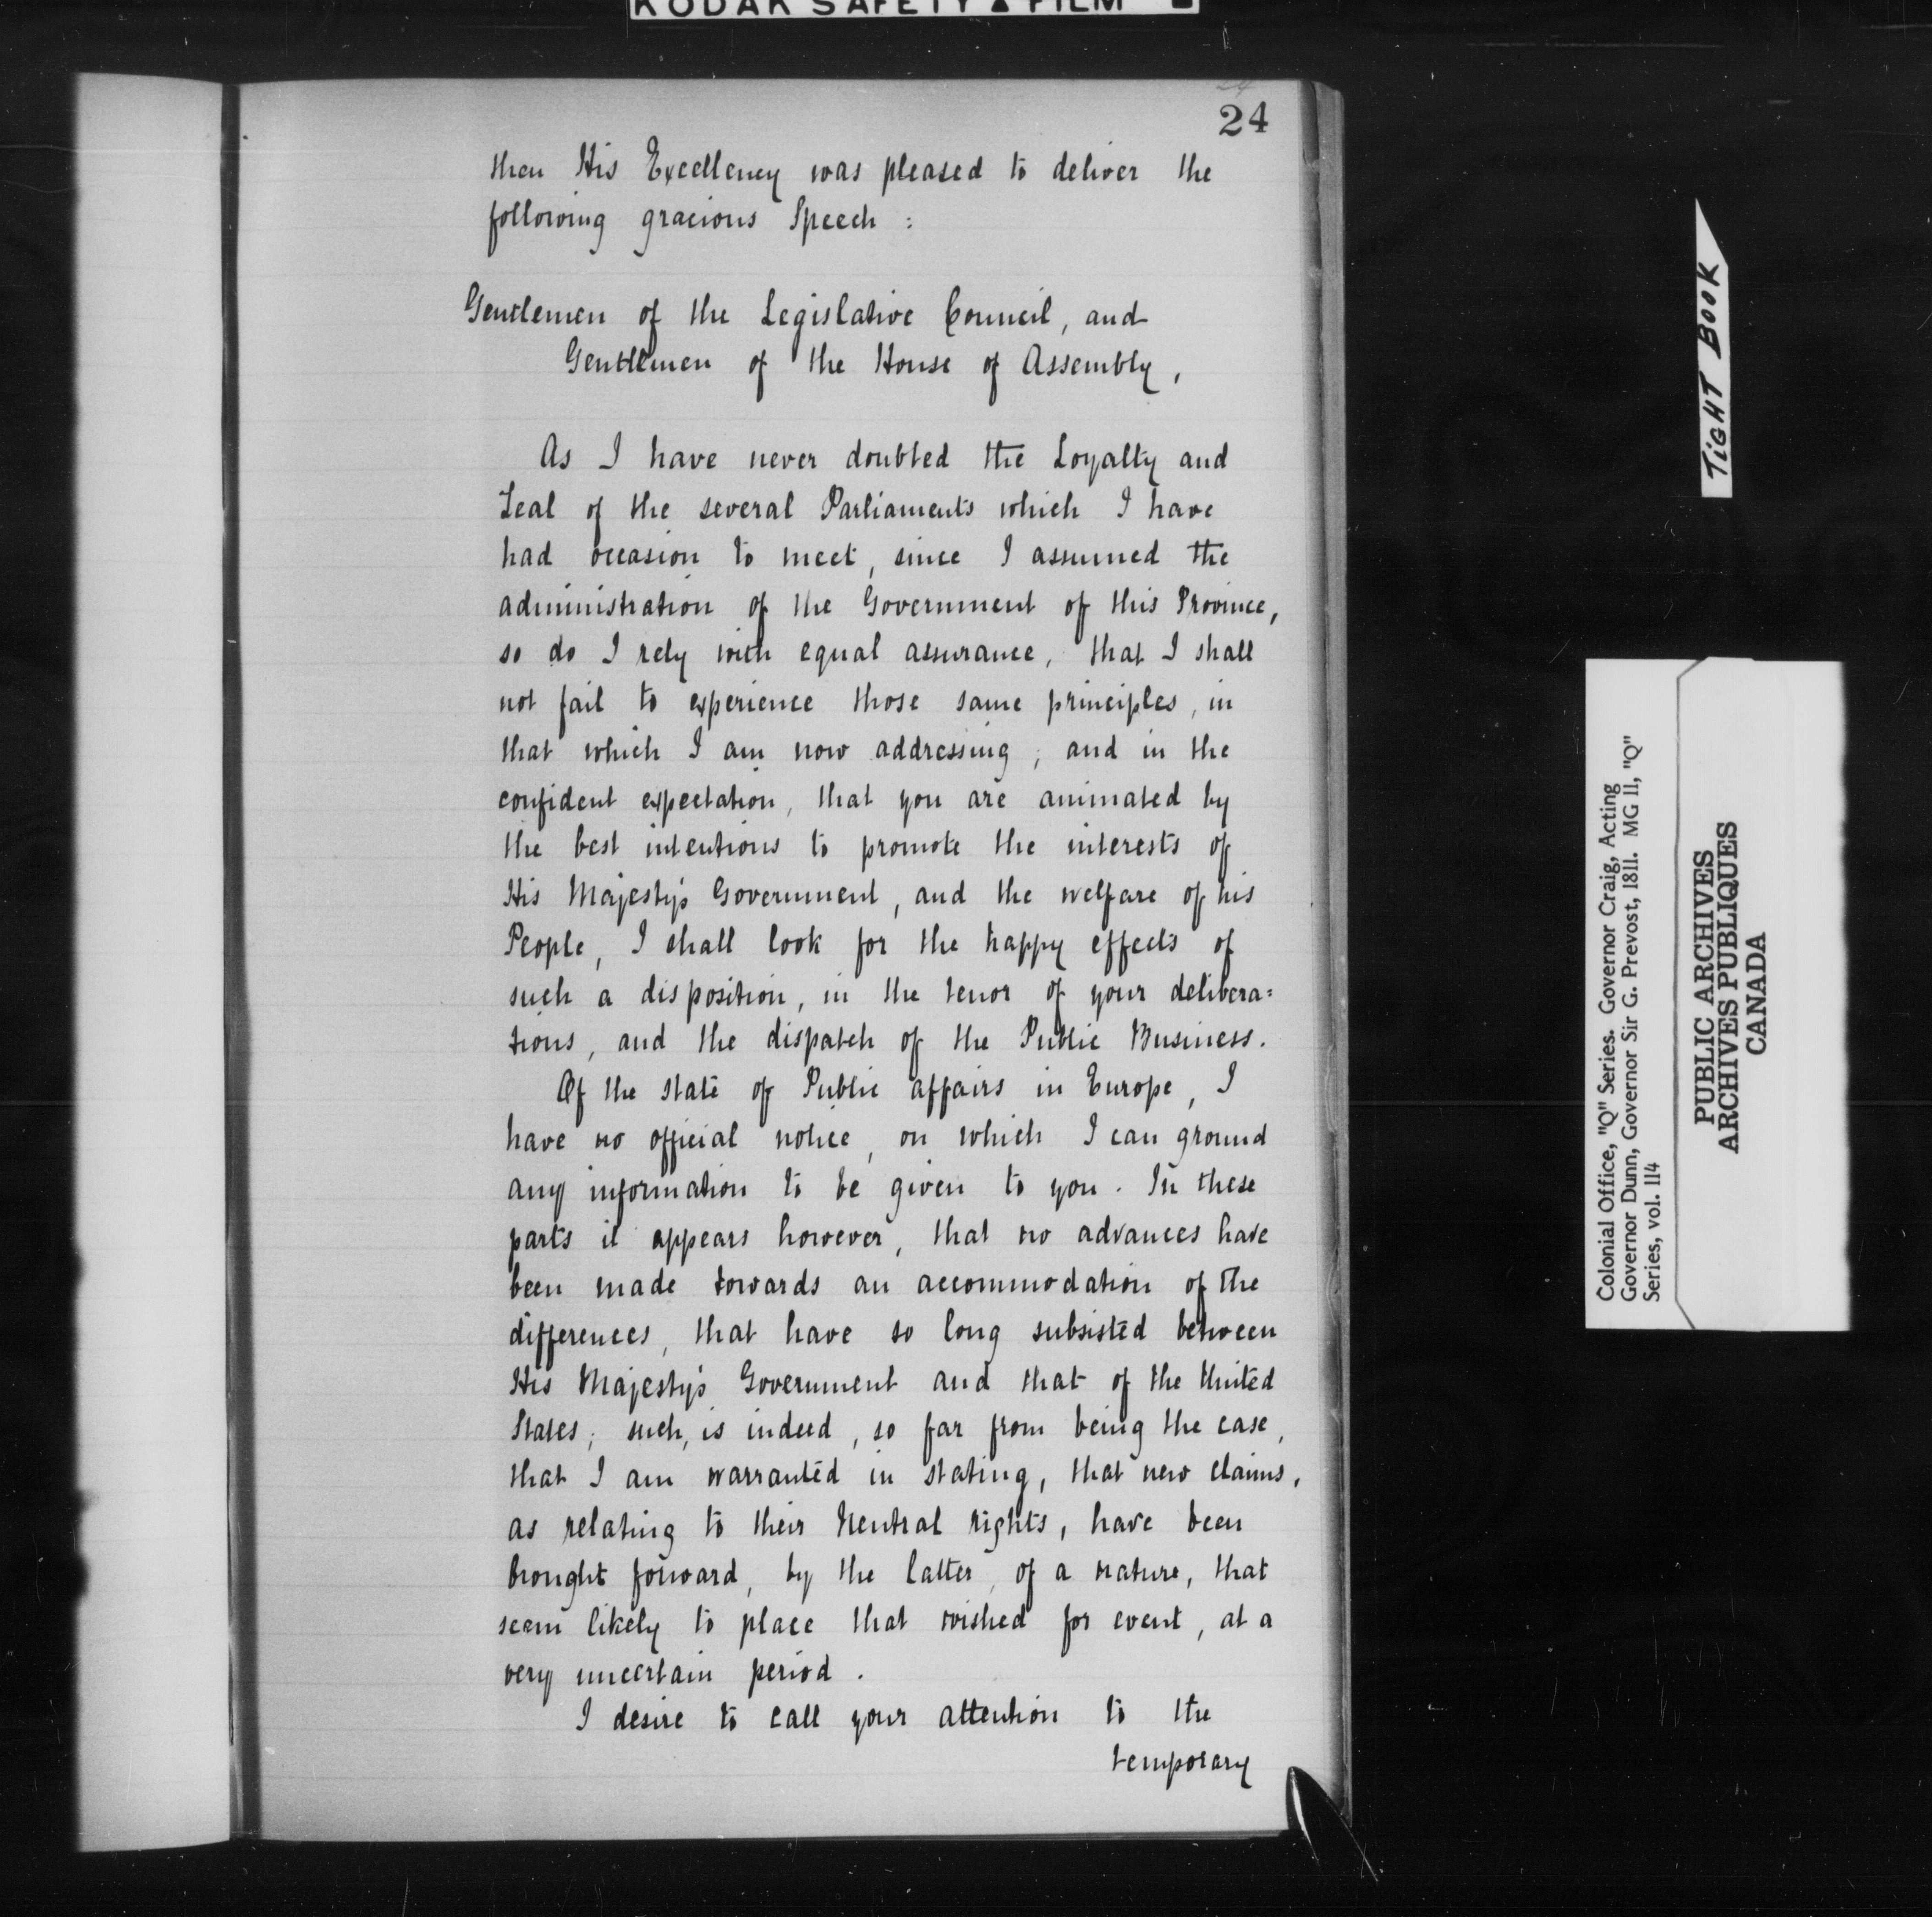 KODAK SAFETY ▲ FILM
24
24
then His Excellency was pleased to deliver the
following gracious Speech :
Gentlemen of the Legislative Council, and
Gentlemen of the House of Assembly,
As I have never doubted the Loyalty and
Zeal of the several Parliaments which I have
had occasion to meet, since I assumed the
administration of the Government of this Province,
so do I rely with equal assurance, that I shall
not fail to experience those same principles, in
that which I am now addressing ; and in the
confident expectation, that you are animated by
the best intentions to promote the interests of
His Majesty's Government, and the welfare of his
People, I shall look for the happy effects of
such a disposition, in the tenor of your delibera=
tions, and the dispatch of the Public Business.
Of the state of Public affairs in Europe, I
have no official notice, on which I can ground
any information to be given to you. In these
parts it appears however, that no advances have
been made towards an accommodation of the
differences, that have so long subsisted between
His Majesty's Government and that of the United
States; such, is indeed, so far from being the case,
that I am warranted in stating, that new claims,
as relating to their Neutral rights, have been
brought forward, by the latter, of a nature, that
seem likely to place that wished for event, at a
very uncertain period.
I desire to call your attention to the
temporary
TIGHT BOOK
Colonial Office, "Q" Series. Governor Craig, Acting
Governor Dunn, Governor Sir G. Prevost, 1811. MG 11, "Q"
Series, vol. 114
PUBLIC ARCHIVES
ARCHIVES PUBLIQUES
CANADA